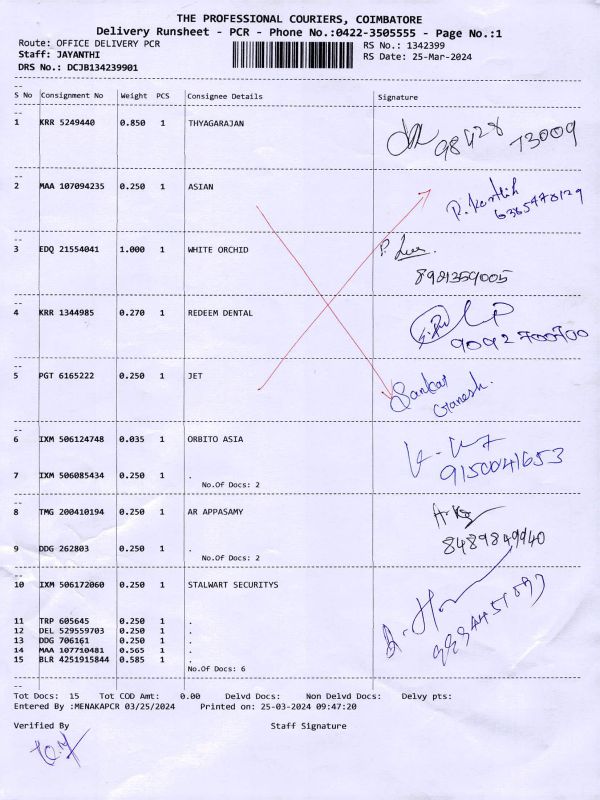 THE PROFESSIONAL COURIERS, COIMBATORE
Delivery Runsheet - PCR - Phone No.:0422-3505555 - Page No.:1
Route: OFFICE DELIVERY PCR RS No.: 1342399
Staff: JAYANTHI RS Date: 25-Mar-2024
DRS No.: DCJB134239901
S No Consignment No Weight PCS Consignee Details Signature
1 KRR 5249440 0.850 1 THYAGARAJAN
98428 73009
2 MAA 107094235 0.250 1 ASIAN
P. Karthik
6365478129
3 EDQ 21554041 1.000 1 WHITE ORCHID
8981359005
4 KRR 1344985 0.270 1 REDEEM DENTAL
9092700700
5 PGT 6165222 0.250 1 JET
Sankar
Ganesh.
6 IXM 506124748 0.035 1 ORBITO ASIA
9150041653
7 IXM 506085434 0.250 1 .
No.Of Docs: 2
8 TMG 200410194 0.250 1 AR APPASAMY
8489849940
9 DDG 262803 0.250 1 .
No.Of Docs: 2
10 IXM 506172060 0.250 1 STALWART SECURITYS
11 TRP 605645 0.250 1 .
12 DEL 529559703 0.250 1 .
13 DDG 706161 0.250 1 .
14 MAA 107710481 0.565 1 .
15 BLR 4251915844 0.585 1 .
No.Of Docs: 6
Tot Docs: 15 Tot COD Amt: 0.00 Delvd Docs: Non Delvd Docs: Delvy pts:
Entered By :MENAKAPCR 03/25/2024 Printed on: 25-03-2024 09:47:20
Verified By Staff Signature